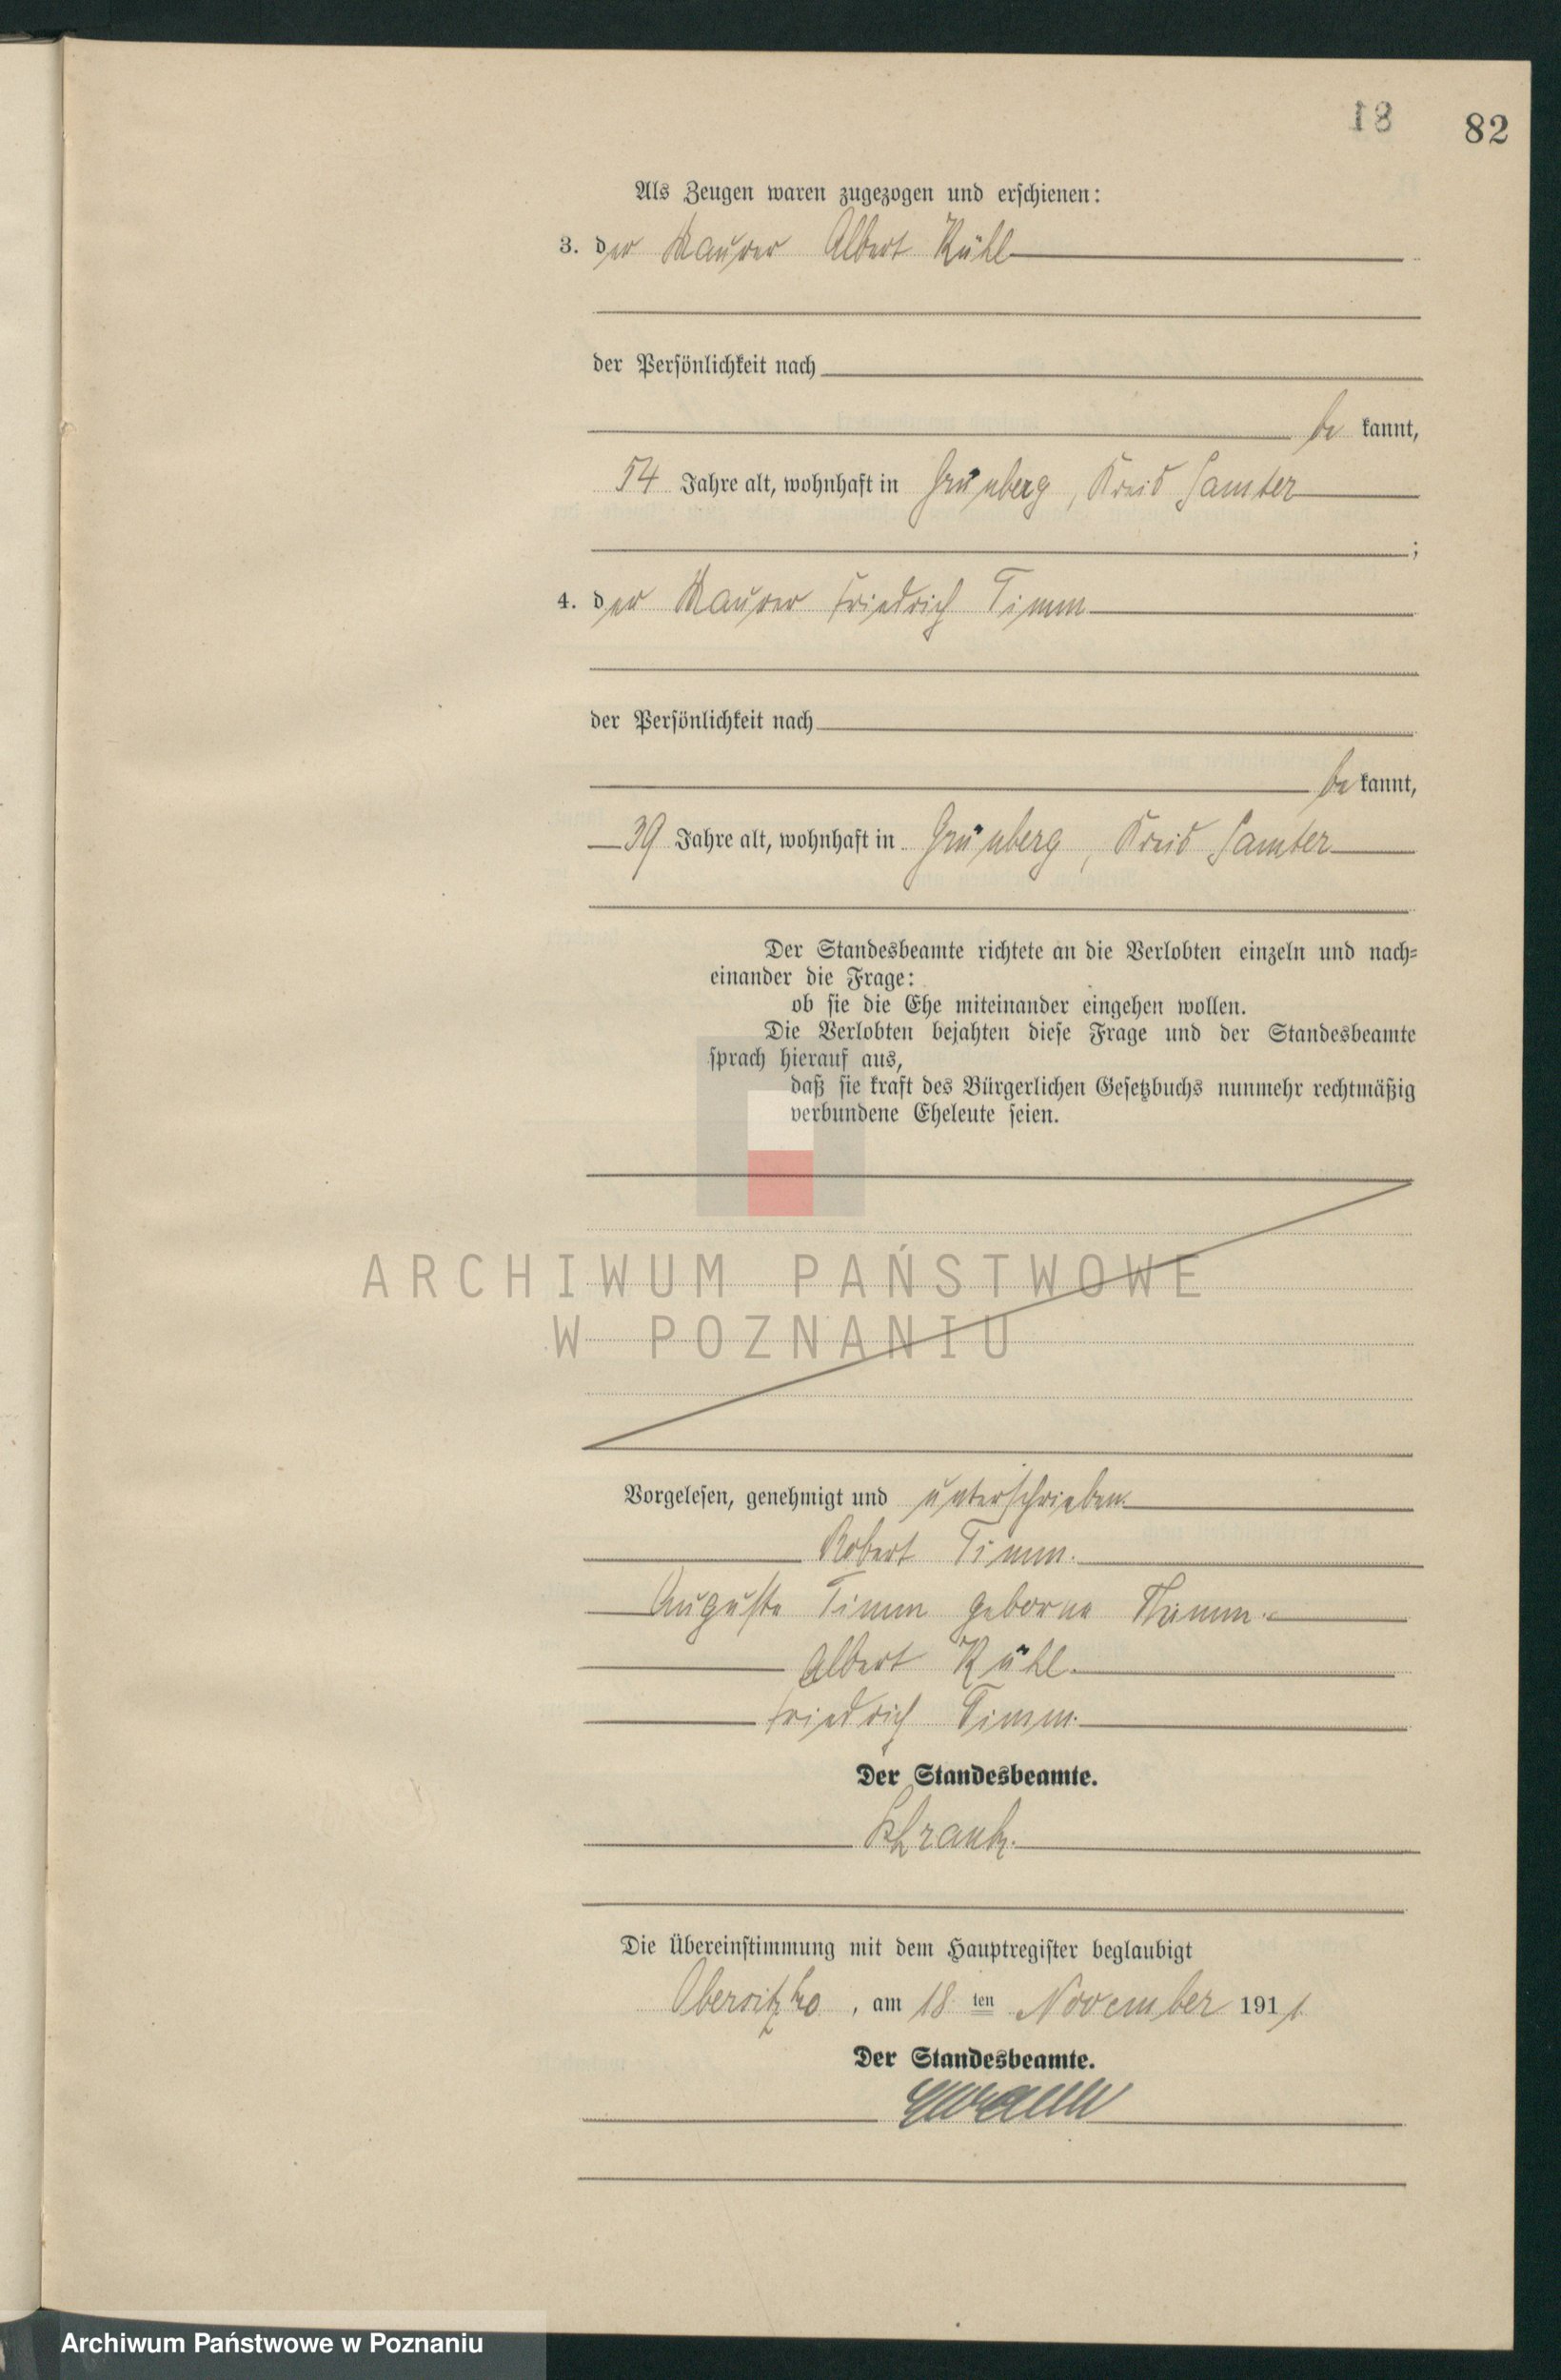 18 82
Als Zeugen waren zugezogen und erschienen:
3. der Maurer Albert Kühl
der Persönlichkeit nach
be kannt,
54 Jahre alt, wohnhaft in Grünberg, Kreis Samter
;
4. der Maurer Friedrich Timm
der Persönlichkeit nach
be kannt,
39 Jahre alt, wohnhaft in Grünberg, Kreis Samter
Der Standesbeamte richtete an die Verlobten einzeln und nach-
einander die Frage:
ob sie die Ehe miteinander eingehen wollen.
Die Verlobten bejahten diese Frage und der Standesbeamte
sprach hierauf aus,
daß sie kraft des Bürgerlichen Gesetzbuchs nunmehr rechtmäßig
verbundene Eheleute seien.
ARCHIWUM PAŃSTWOWE
W POZNANIU
Vorgelesen, genehmigt und unterschrieben.
Robert Timm.
Auguste Timm geborne Thimm.
Albert Kühl.
Friedrich Timm.
Der Standesbeamte.
Schrank.
Die Übereinstimmung mit dem Hauptregister beglaubigt
Obersitzko, am 18 ten November 1911
Der Standesbeamte.
Archiwum Państwowe w Poznaniu